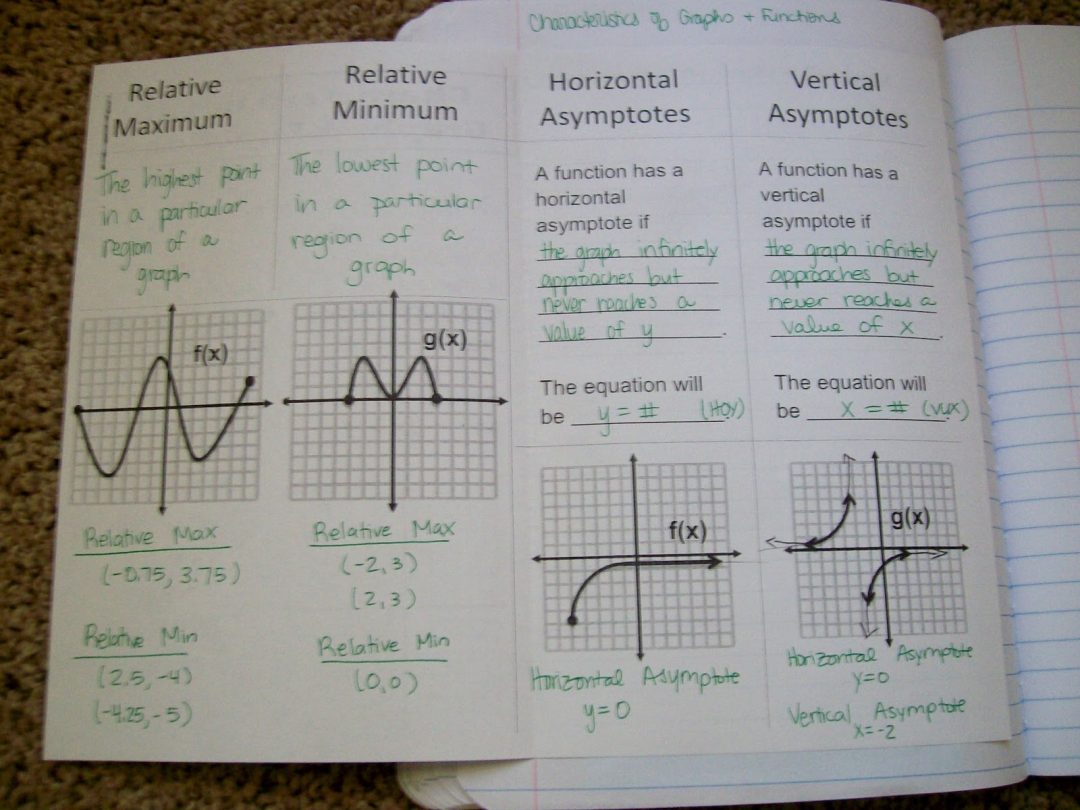 Characteristics of Graphs + Functions
Relative
Maximum
The highest point
in a particular
region of a
graph
f(x)
Relative Max
(-0.75, 3.75)
Relative Min
(2.5, -4)
(-4.25, -5)
Relative
Minimum
The lowest point
in a particular
region of a
graph
g(x)
Relative Max
(-2, 3)
(2, 3)
Relative Min
(0,0)
Horizontal
Asymptotes
A function has a
horizontal
asymptote if
the graph infinitely
approaches but
never reaches a
value of y.
The equation will
be y = # (HOY)
f(x)
Horizontal Asymptote
y=0
Vertical
Asymptotes
A function has a
vertical
asymptote if
the graph infinitely
approaches but
never reaches a
value of x.
The equation will
be x = # (VUX)
g(x)
Horizontal Asymptote
y=0
Vertical Asymptote
x=-2